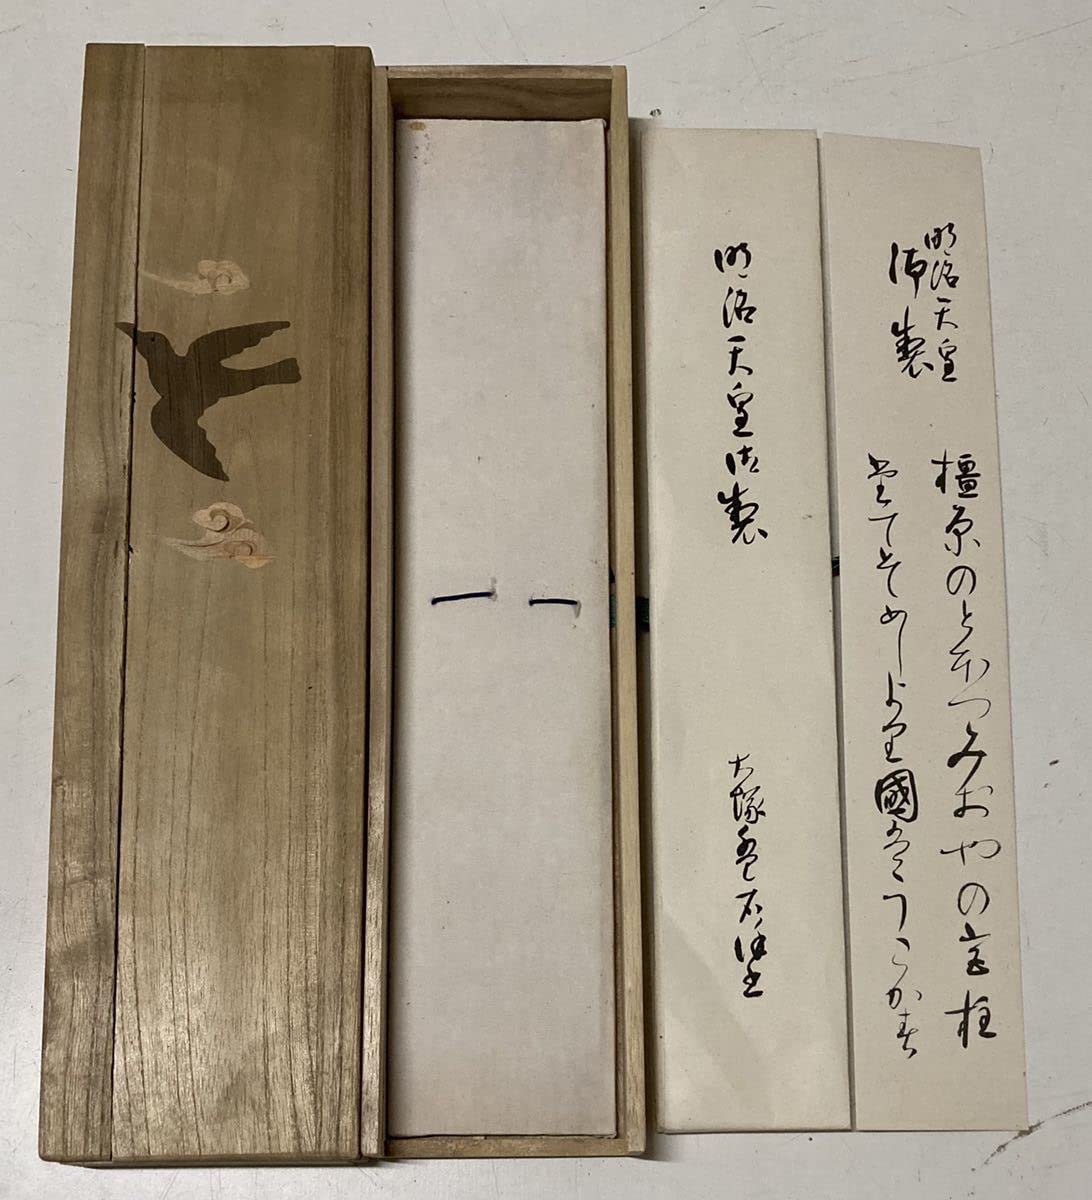 明治天皇
御製
橿原のとほつみおやの宮柱
たてそめしより國はうこかす
明治天皇御製
大塚